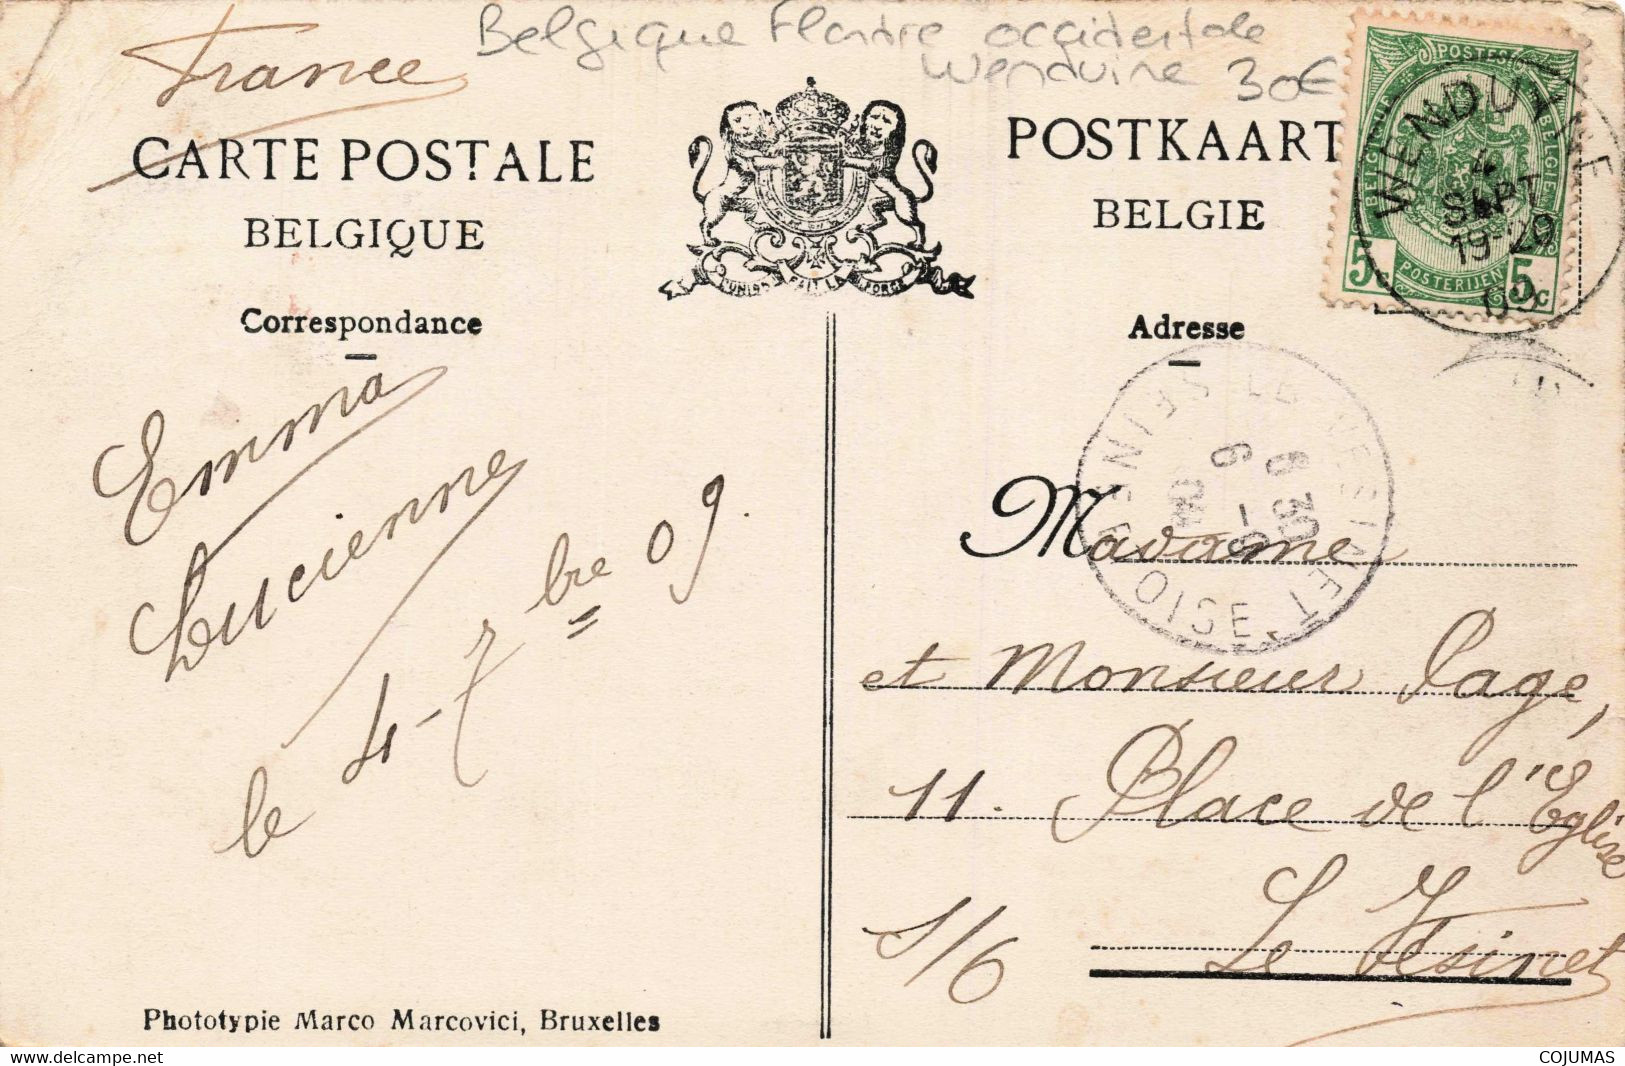 Belgique Flandre occidentale
Wenduine 30€
France
CARTE POSTALE
BELGIQUE
POSTKAART
BELGIE
L'UNION FAIT LA FORCE
POSTES
BELGIQUE
BELGIË
POSTERIJEN
5c
5c
WENDUYNE
4
SEPT
19-20
09
Correspondance
Adresse
LE VESINET
SEINE ET OISE
6 30
6 -9
09
Emma
Lucienne
le 4-7bre 09.
Madame
et Monsieur Page,
11. Place de l'Eglise
S/6 Le Vésinet
Phototypie Marco Marcovici, Bruxelles
COJUMAS